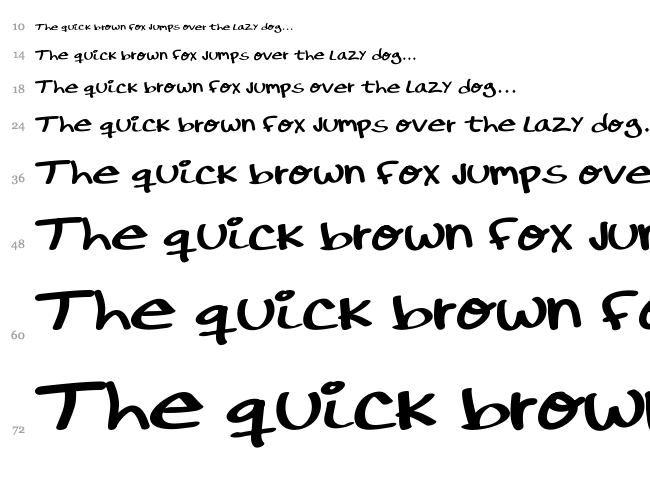 10 The quick brown fox jumps over the lazy dog...
14 The quick brown fox jumps over the lazy dog...
18 The quick brown fox jumps over the lazy dog...
24 The quick brown fox jumps over the lazy dog.
36 The quick brown fox jumps ove
48 The quick brown fox jur
60 The quick brown fo
72 The quick brow